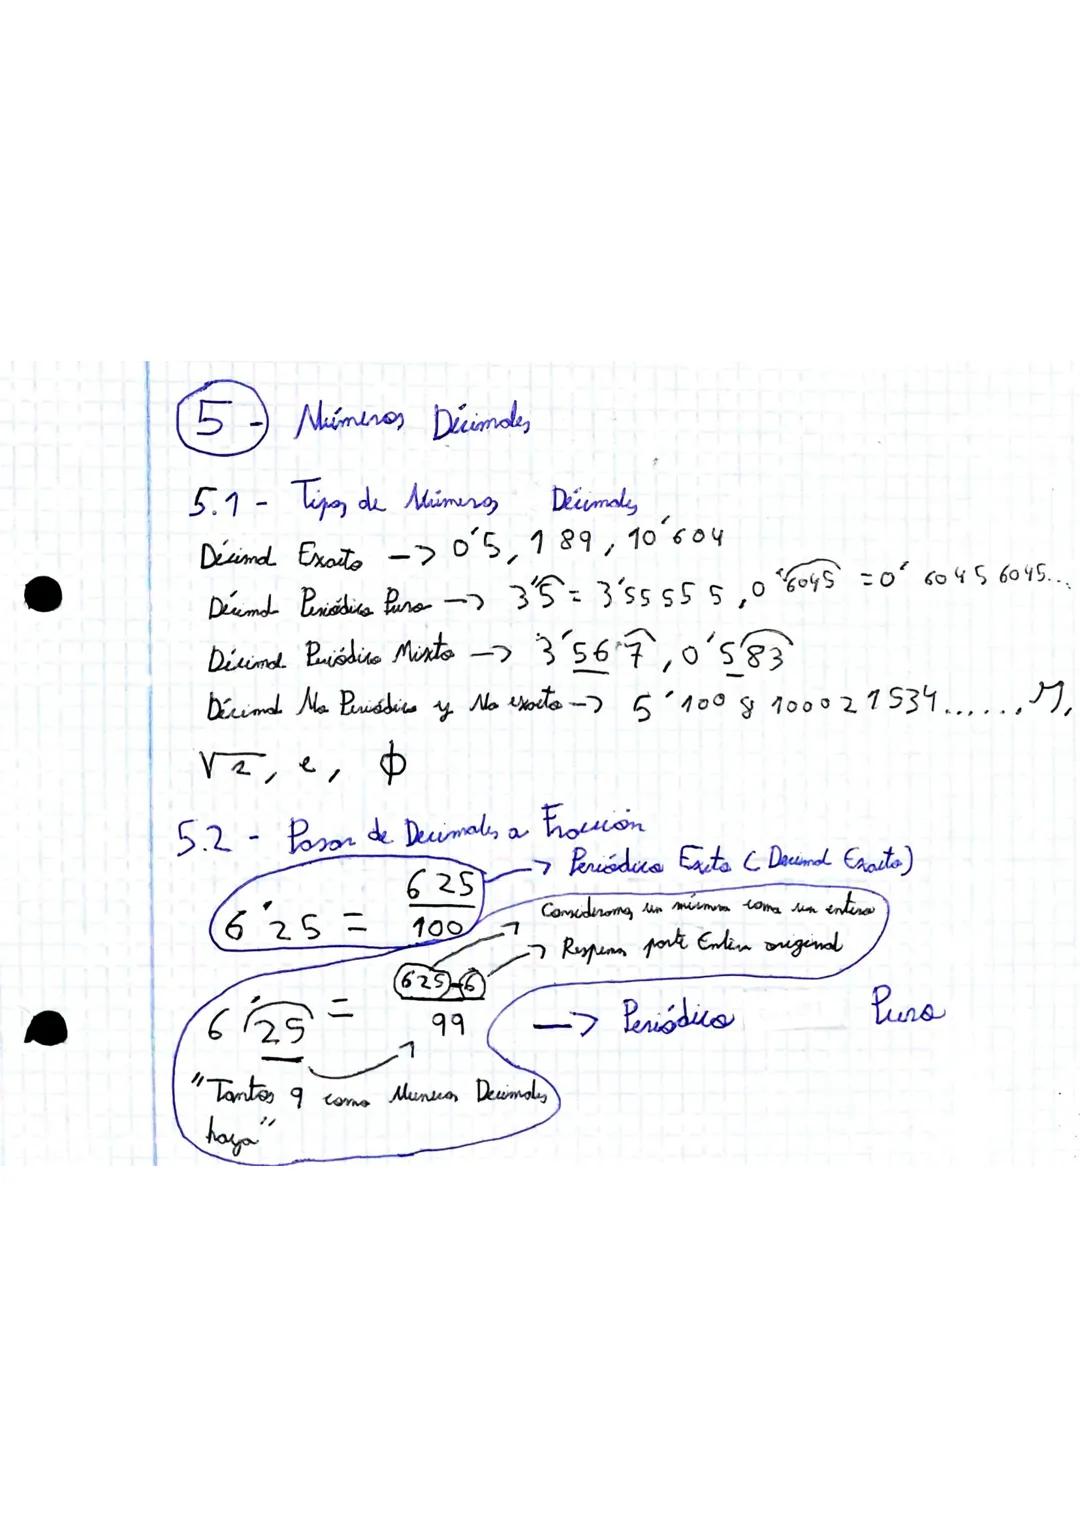 5- Números Décimales
5.1 - Tipos de Números Décimales
Décimal Exacto -> 0'5, 1 89, 10'604
Décimal Periódico Puro -> 3'5 = 3'55555, 0'6045 = 0'60456045...
Décimal Periódico Mixto -> 3'567, 0'583
Décimal No Periódico y No exacto -> 5'1008100021534......,
√2, e, φ
5.2 - Pasar de Decimales a Fracción
6'25 = 625/100 -> Periódico Exato (Decimal Exacto)
-> Consideramos un número como un entero
-> parte Entera original
6'25 = 625-6/99 -> Periódico Puro
"Tantos 9 como Números Decimales
haya"